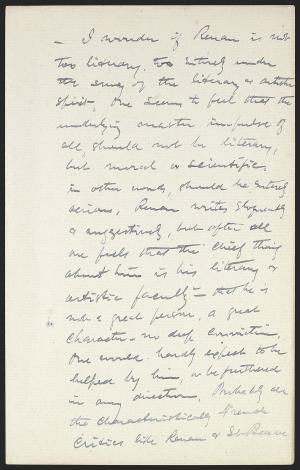 — I wonder if Renan is not
too literary, too entirely under
the sway of the literary & artistic
spirit. One seems to feel that the
underlying master impulse of
all, should not be literary,
but moral or scientific,
in other words, should be entirely
serious. Renan writes eloquently
& suggestively, but after all
one feels that the chief thing
about him is his literary &
artistic faculty — that he is
not a great person, a great
character — no deep conviction.
One would hardly expect to be
helped by him, or be furthered
in any direction. Probably all
the characteristically French
Critics like Renan & St Beuve